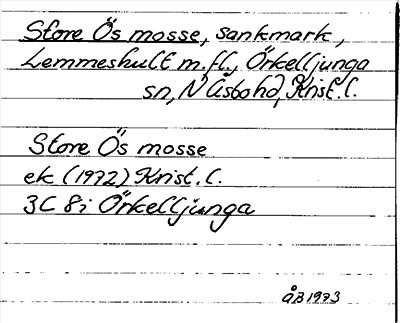 Store Ös mosse, sankmark,
Lemmeshult m.fl., Örkelljunga
sn, N Åsbo hd, Krist.l.
Store Ös mosse
ek (1972) Krist.l.
3C 8i Örkelljunga
ÅB 1973